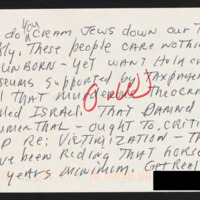 you
do CRAM JEWS down OUR T
ly, These people CARE nothin
UNBORN - yet WANT Holoc
seums supported by Taxpayer
that murderous Theocr
led ISRAEL. That DAMNED
umenthal - ought to criti
P Re: Victimization - Th
ve been Riding That horse
years minimum. Get Real